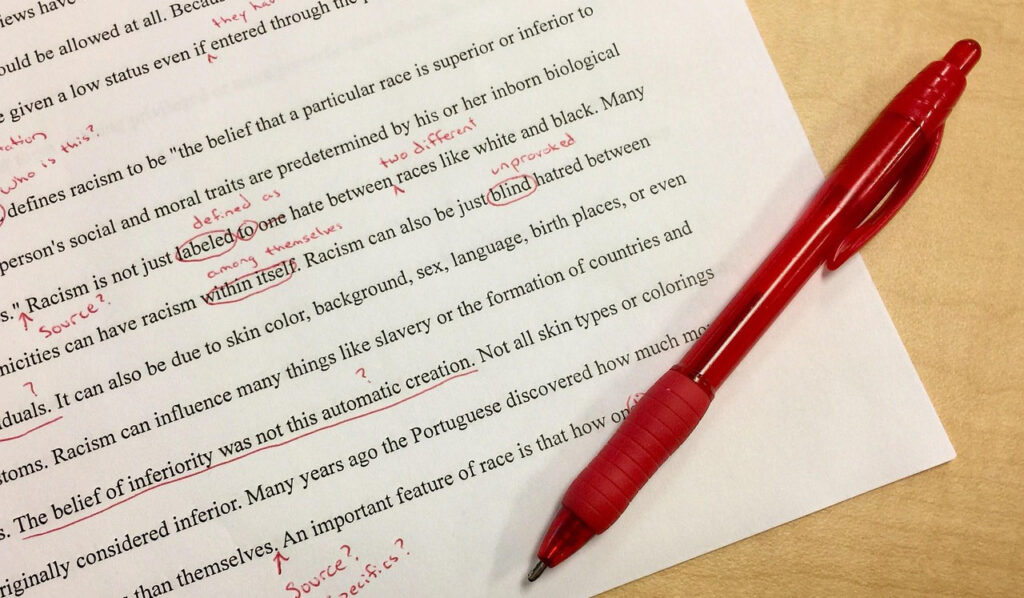 iews have
ould be allowed at all. Becau
they hav
e given a low status even if ^ entered through the
defines racism to be "the belief that a particular race is superior or inferior to
who is this?
person's social and moral traits are predetermined by his or her inborn biological
two different
s." Racism is not just labeled to one hate between ^ races like white and black. Many
defined as
unprovoked
Source?
nicities can have racism within itself. Racism can also be just blind hatred between
among themselves
?
duals. It can also be due to skin color, background, sex, language, birth places, or even
stoms. Racism can influence many things like slavery or the formation of countries and
?
s. The belief of inferiority was not this automatic creation. Not all skin types or colorings
riginally considered inferior. Many years ago the Portuguese discovered how much mo
than themselves. An important feature of race is that how on
Source?
pecifics?